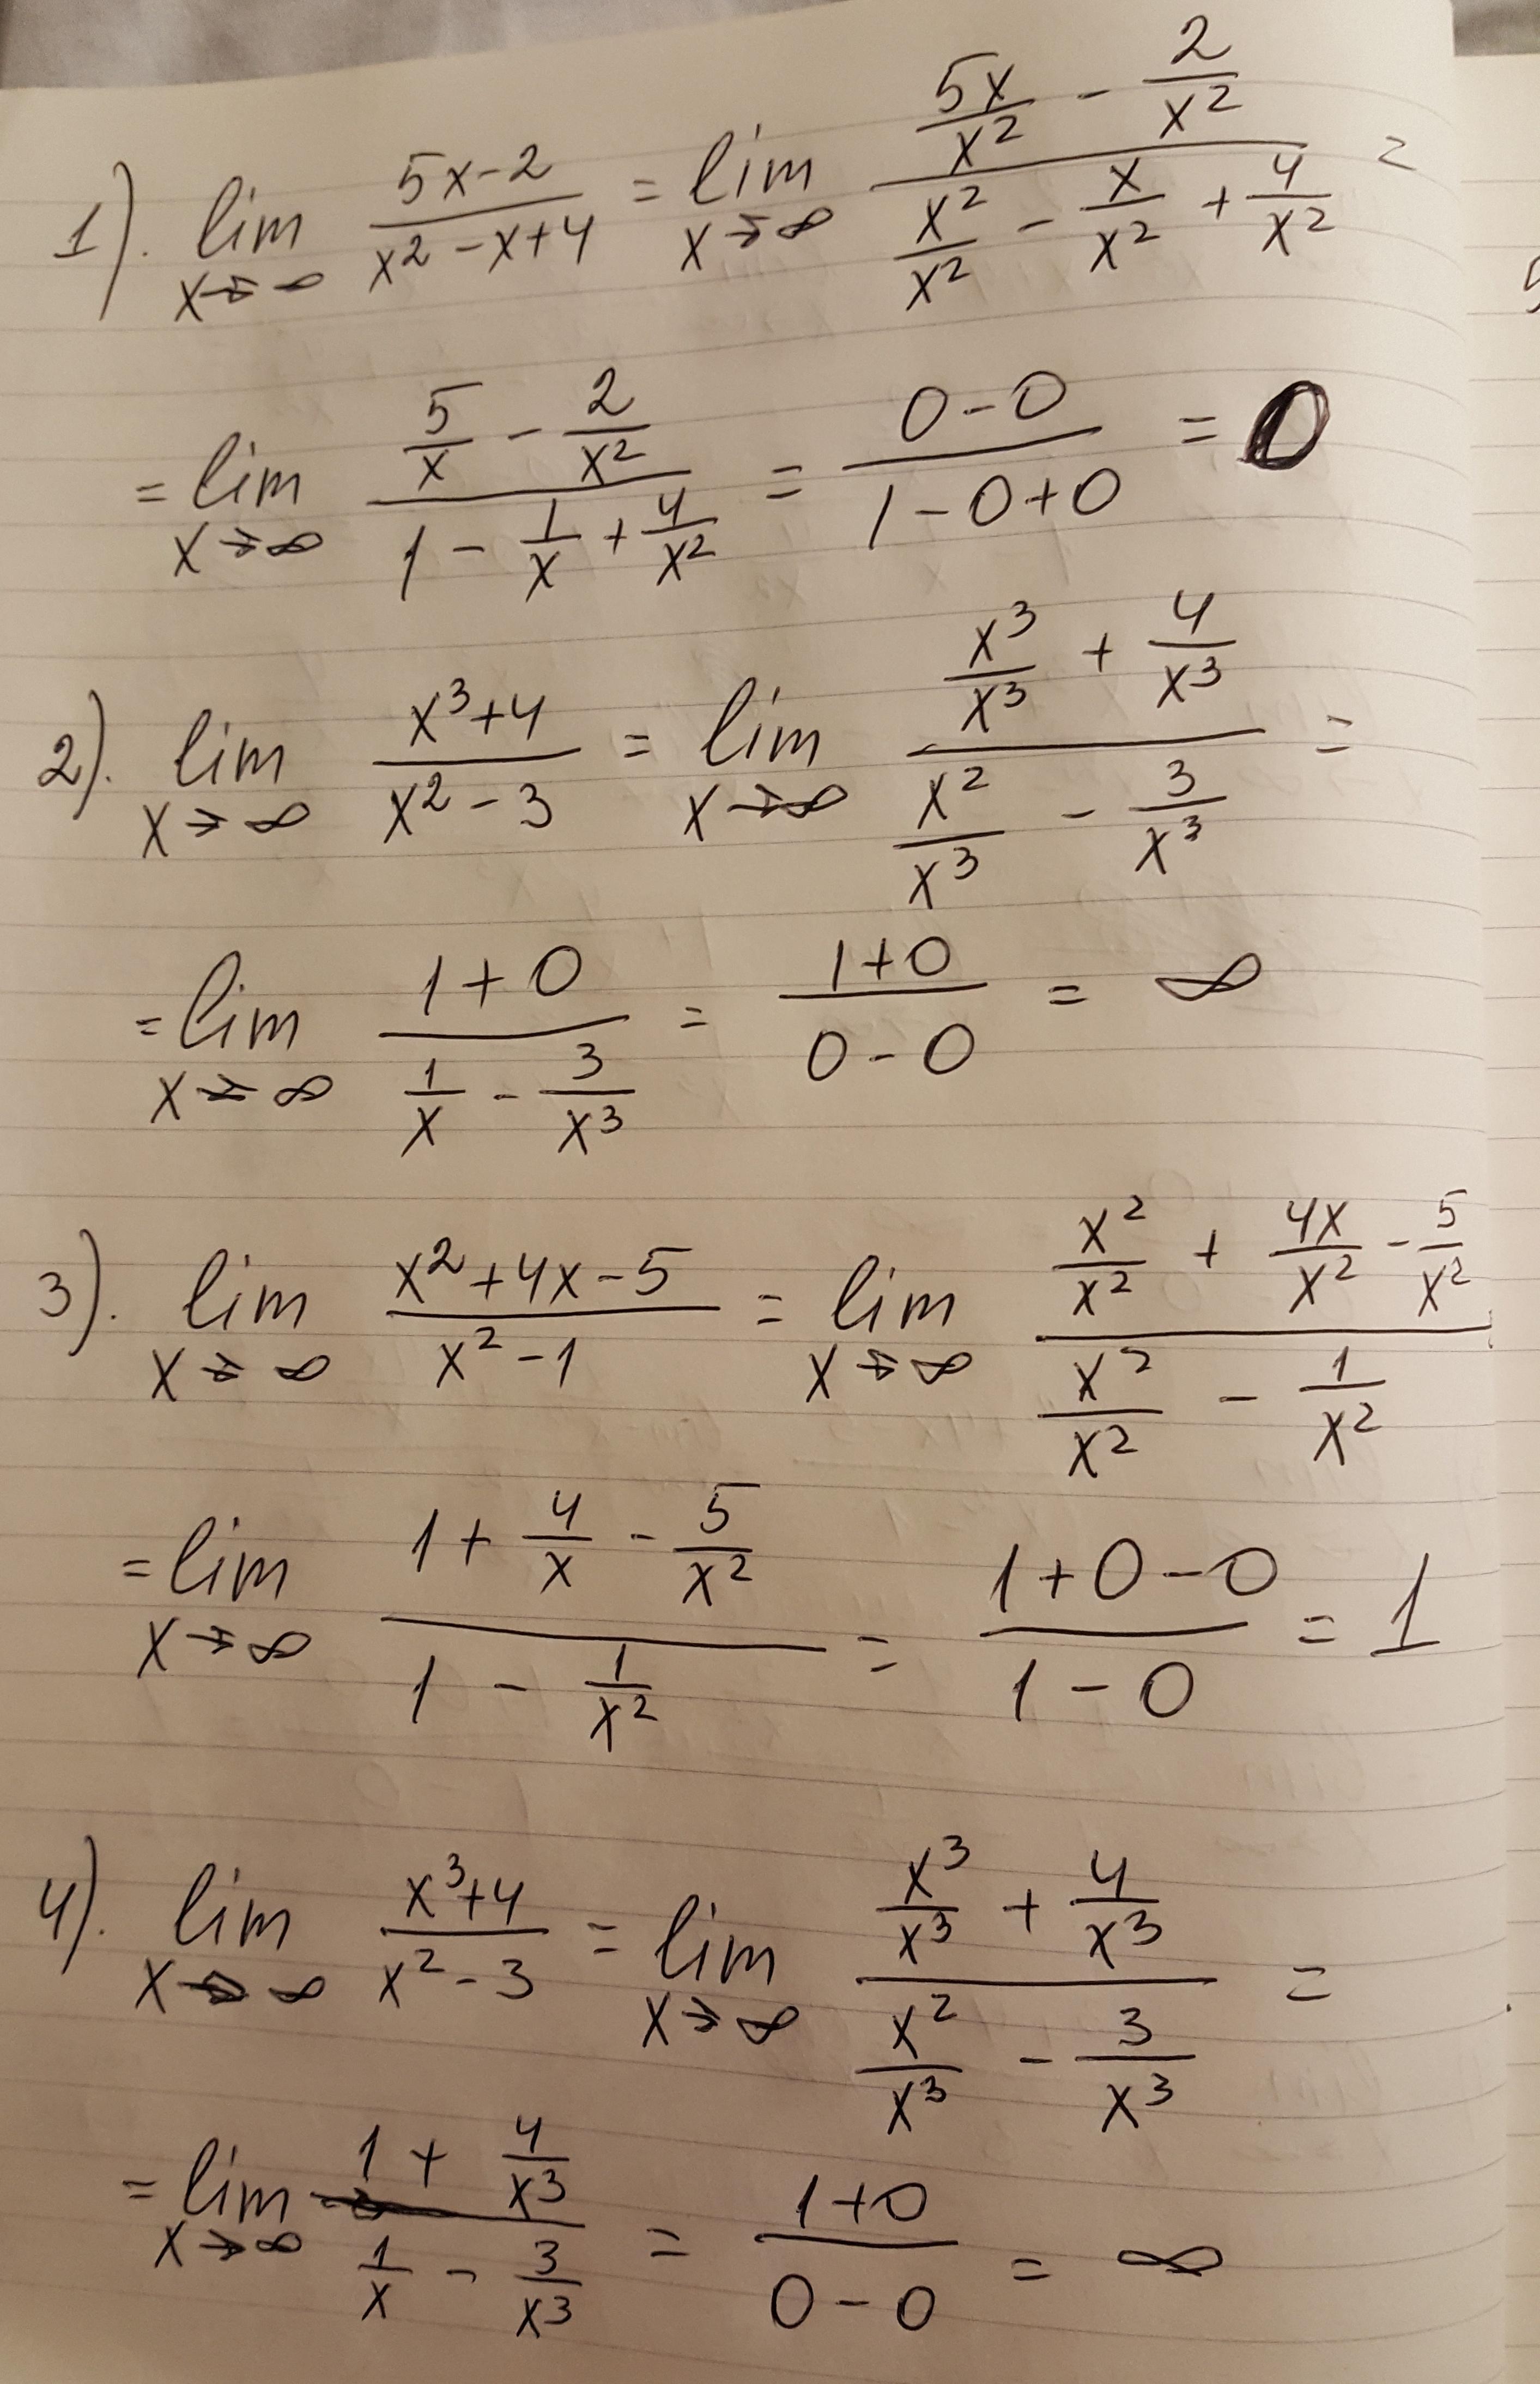 1). lim_{x→∞} (5x-2)/(x²-x+4) = lim_{x→∞} (5x/x² - 2/x²)/(x²/x² - x/x² + 4/x²) =
= lim_{x→∞} (5/x - 2/x²)/(1 - 1/x + 4/x²) = (0-0)/(1-0+0) = 0
2). lim_{x→∞} (x³+4)/(x²-3) = lim_{x→∞} (x³/x³ + 4/x³)/(x²/x³ - 3/x³) =
= lim_{x→∞} (1+0)/(1/x - 3/x³) = (1+0)/(0-0) = ∞
3). lim_{x→∞} (x²+4x-5)/(x²-1) = lim_{x→∞} (x²/x² + 4x/x² - 5/x²)/(x²/x² - 1/x²)
= lim_{x→∞} (1 + 4/x - 5/x²)/(1 - 1/x²) = (1+0-0)/(1-0) = 1
4). lim_{x→∞} (x³+4)/(x²-3) = lim_{x→∞} (x³/x³ + 4/x³)/(x²/x³ - 3/x³) =
= lim_{x→∞} (1 + 4/x³)/(1/x - 3/x³) = (1+0)/(0-0) = ∞